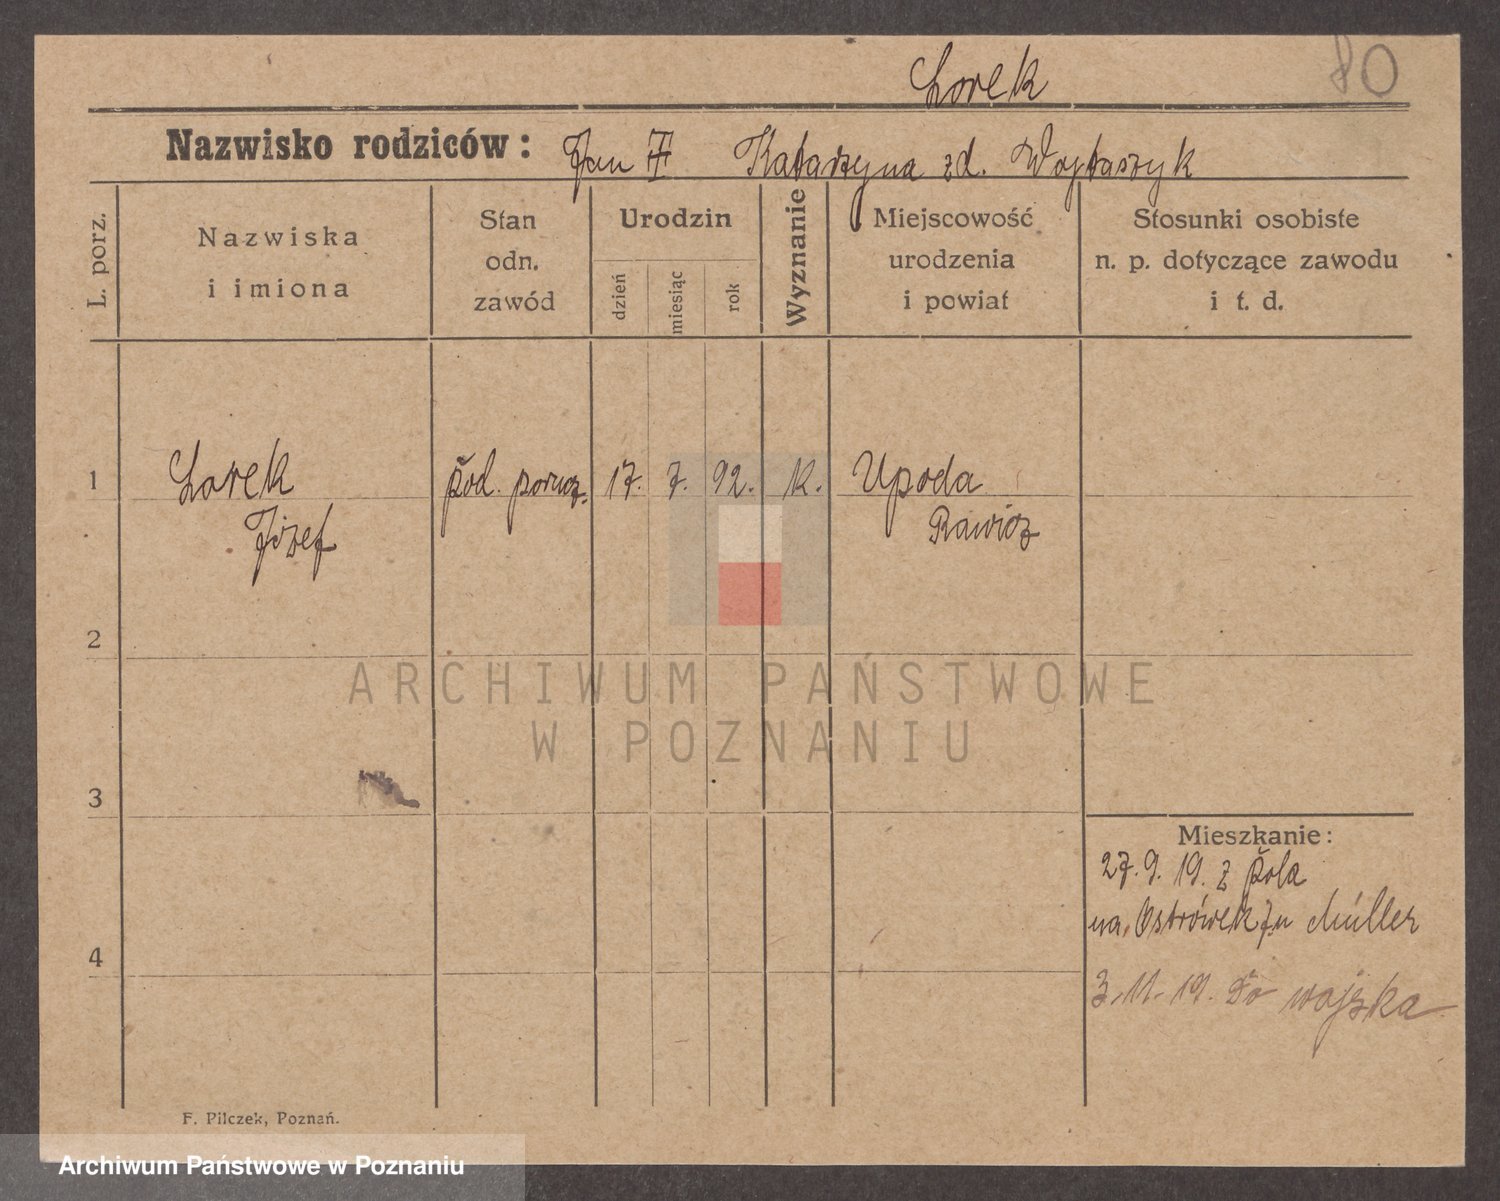 80
Lorek
Nazwisko rodziców: Jan Katarzyna zd. Wojtaszyk
L. porz.
Nazwiska
i imiona
Stan
odn.
zawód
Urodzin
dzień
miesiąc
rok
Wyznanie
Miejscowość
urodzenia
i powiat
Stosunki osobiste
n. p. dotyczące zawodu
i t. d.
1 Lorek pod. porucz. 17. 7. 92. K. Upoda
Józef Rawicz
2
ARCHIWUM PAŃSTWOWE
W POZNANIU
3
Mieszkanie:
27. 9. 19. z Pola
na Ostrówek 7. u Müller
4
3. 11. 19. Do wojska
F. Pilczek, Poznań.
Archiwum Państwowe w Poznaniu